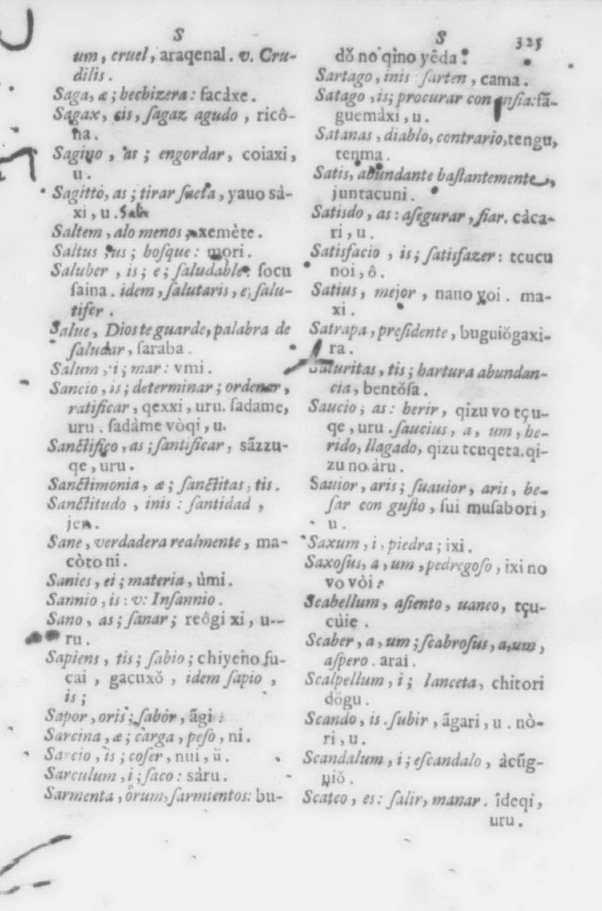 S
um, cruel, araqenal. v. Cru-
dilis.
Saga, æ; hechizera: ſacàxe.
Sagax, cis, ſagaz agudo, ricô-
ña.
Sagino, as; engordar, coiaxi,
u.
Sagitto, as; tirar ſaeta, yauo sà-
xi, u.
Saltem, alo menos; axemète.
Saltus, us; boſque: mori.
Saluber, is; e; ſaludable: ſocu
ſaina. idem, ſalutaris, e, ſalu-
tifer.
Salue, Dios te guarde, palabra de
ſaludar, ſaraba.
Salum, i; mar: vmi.
Sancio, is; determinar; ordenar,
ratificar, qexxi, uru. ſadame,
uru. ſadàme vòqi, u.
Sanctifico, as; ſantificar, sãzzu-
qe, uru.
Sanctimonia, æ; ſanctitas, tis.
Sanctitudo, inis: ſantidad,
jen.
Sane, verdadera realmente, ma-
còto ni.
Sanies, ei; materia, ùmi.
Sannio, is: v: Inſannio.
Sano, as; ſanar; reôgi xi, u--
ru.
Sapiens, tis; ſabio; chiyeno ſu-
cai, gacuxǒ, idem ſapio,
is;
Sapor, oris; ſabòr, ãgi:
Sarcina, æ; càrga, peſo, ni.
Sarcio, is; coſer, nui, ü.
Sarculum, i; ſaco: sàru.
Sarmenta, òrum, ſarmientos: bu-
S 325
dǒ no qino yêda:
Sartago, inis ſarten, cama.
Satago, is; procurar con anſia: ſã-
guemàxi, u.
Satanas, diablo, contrario, tengu,
tenma.
Satis, abundante baſtantemente,
juntacuni.
Satisdo, as: aſegurar, fiar. càca-
ri, u.
Satisfacio, is; ſatisfazer: tcucu
noi, ô.
Satius, mejor, nano yoi. ma-
xi.
Satrapa, preſidente, buguiǒgaxi-
ra.
Saturitas, tis; hartura abundan-
cia, bentǒſa.
Saucio, as: herir, qizu vo tçu-
qe, uru. ſaucius, a, um, he-
rido, llagado, qizu tcuqeta. qi-
zu no àru.
Sauior, aris; ſuauior, aris, be-
ſar con guſto, ſui muſabori,
u.
Saxum, i, piedra; ixi.
Saxoſus, a, um, pedregoſo, ixi no
vo vòi:
Scabellum, aſiento, uanco, tçu-
cúie.
Scaber, a, um; ſcabroſus, a, um,
aſpero. arai.
Scalpellum, i; lanceta, chitori
dôgu.
Scando, is. ſubir, ãgari, u. nò-
ri, u.
Scandalum, i; eſcandalo, àcũg-
uiǒ.
Scateo, es: ſalir, manar. îdeqi,
uru.